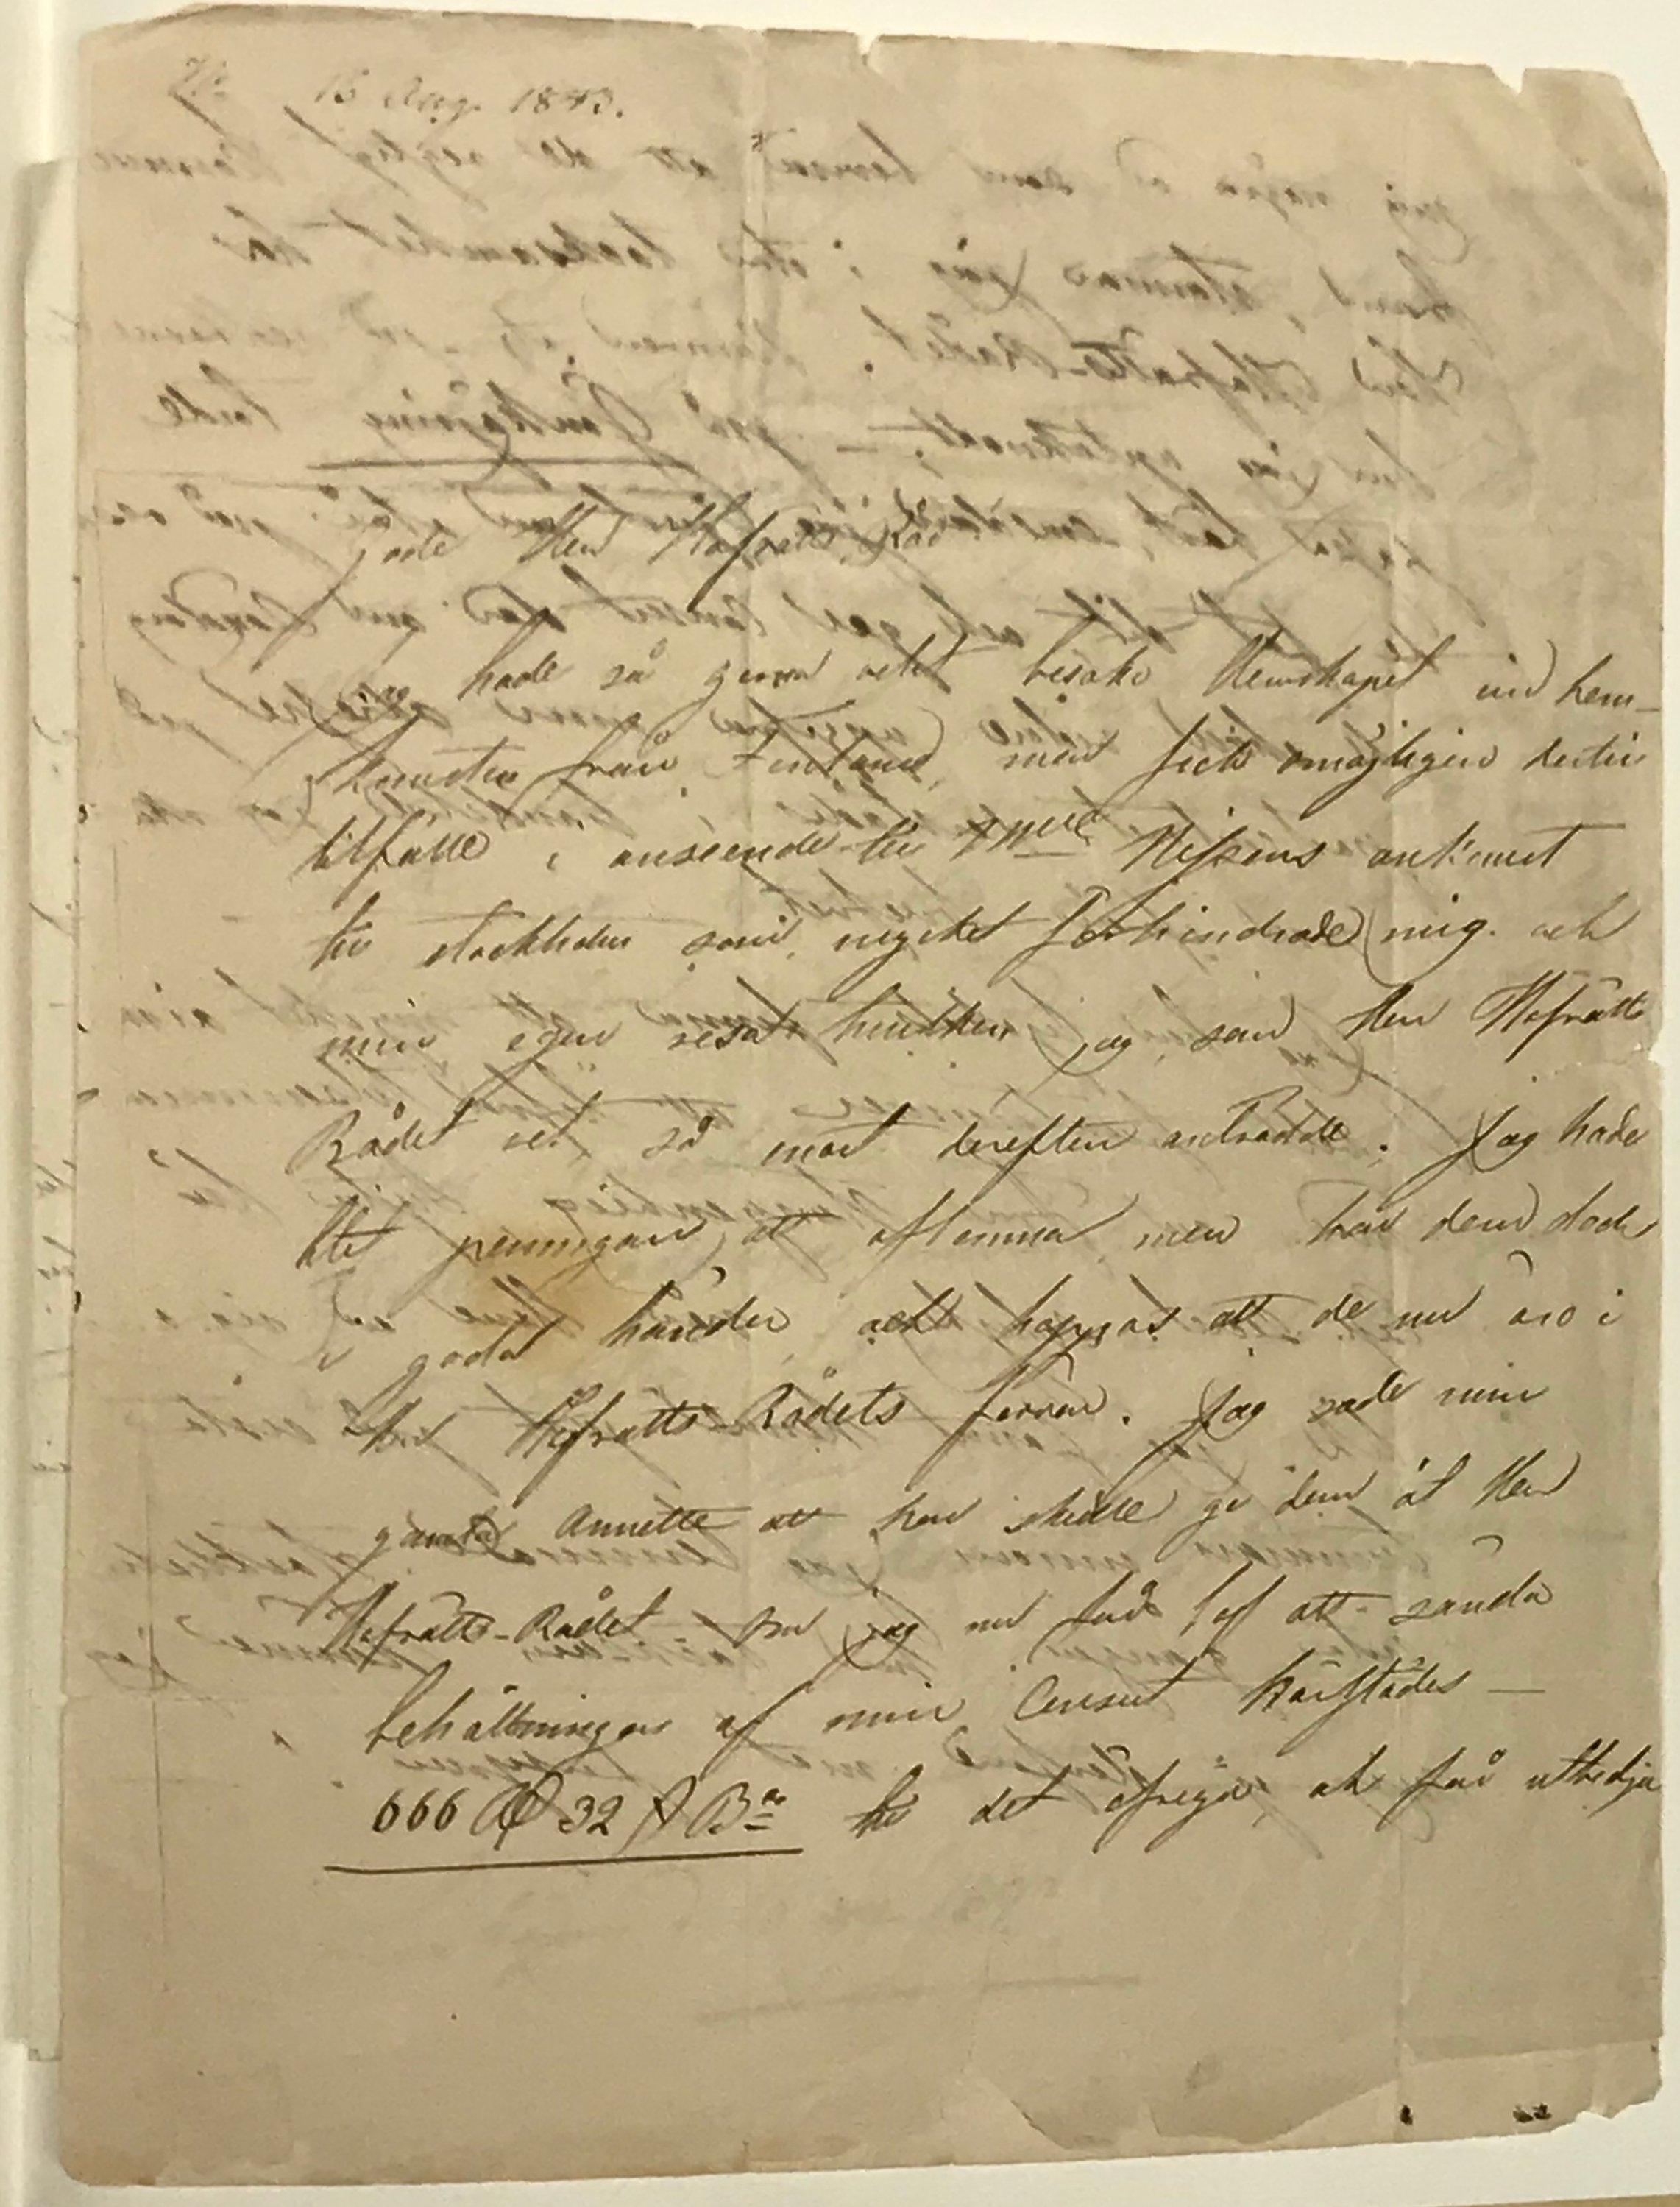 15 Aug. 1843.
Gode Herr Hofrätts Råd
jag hade så gerna velat besöka Herrskapet vid hem-
komsten från Finland, men fick omöjligen dertill
tillfälle, i anseende till Mlle Nissens ankomst
till Stockholm som mycket förhindrade mig. och
min egen resa hvilken jag, som Herr Hofrätts
Rådet vet, så snart derefter anträdde. Jag hade
litet penningar att aflemna, men har dem dock
i goda händer, och hoppas att de nu äro i
Herr Hofrätts-Rådets förvar. Jag sade min
gamla Annette att hon skulle ge dem åt Herr
Hofrätts-Rådet om jag nu får lof att sända
behållningen af min Consert härstädes —
666 32 Bco till det öfriga, att få utbedja